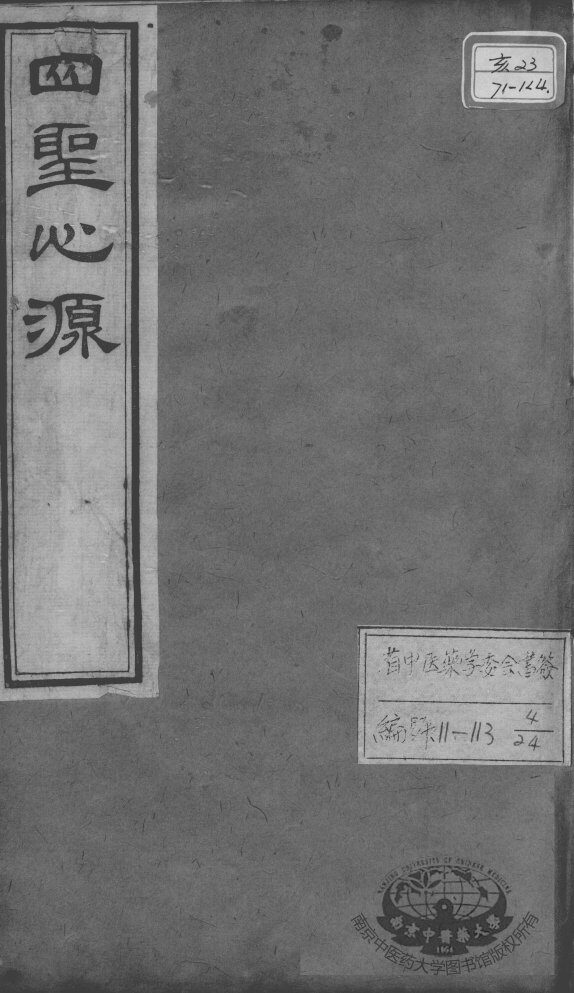 四聖心源
亥23
71-124.
省中医藥学委会書簽
編號11-113 4/24
NANJING UNIVERSITY OF CHINESE MEDICINE
南京中醫藥大學
1954
南京中医药大学图书馆版权所有